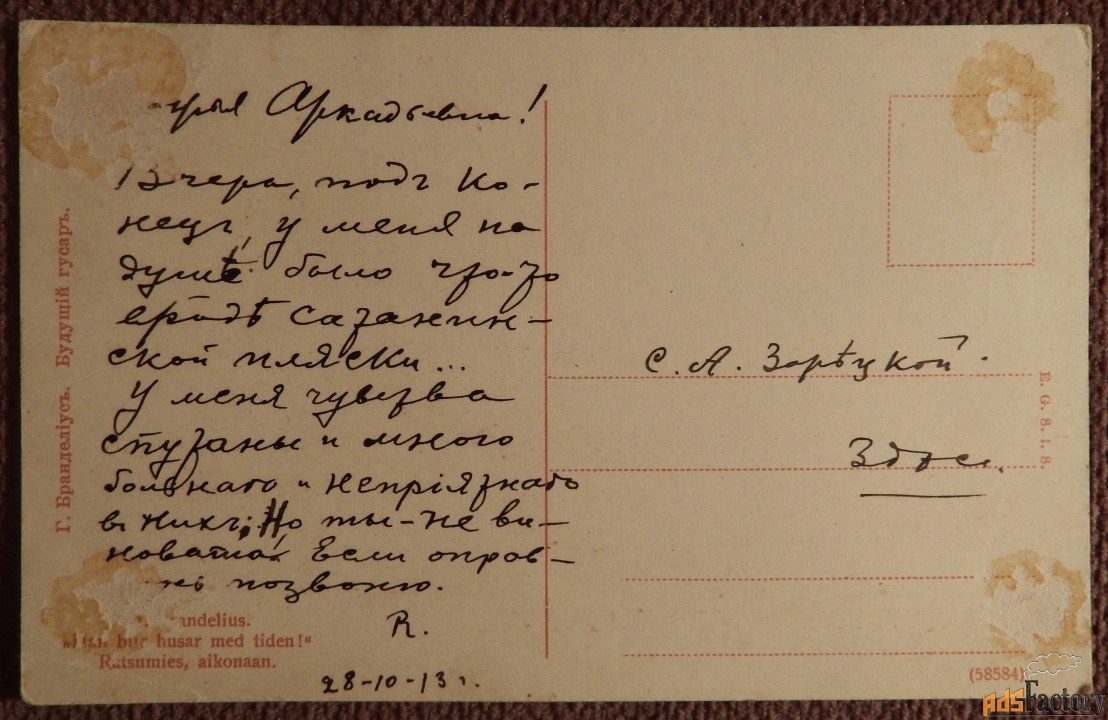 Аркадьевна!
Вчера, подъ ко-
нецъ, у меня на
душѣ было что-то
вродѣ сатанин-
ской пляски...
У меня чувства
спутаны и много
больнаго и непріязнаго
въ нихъ, Но ты-не ви-
новата. Если оправ-
позвоню.
R.
28-10-13 г.
С. А. Зорѣцкой.
Здѣсь.
Г. Бранделіусъ. Будущій гусаръ.
andelius.
blir husar med tiden!“
Ratsumies, aikonaan.
E. G. S. i. S.
(58584)
AdsFactory